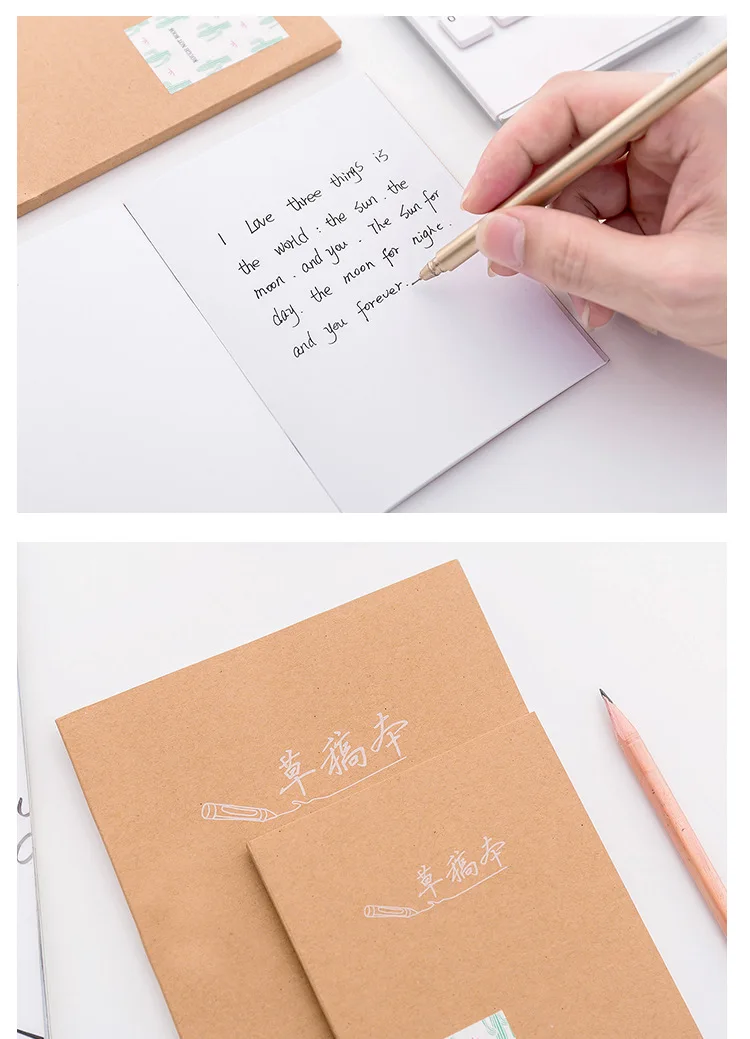 I Love three things is
the world : the sun . the
moon . and you . The sun for
day. the moon for nighc .
and you forever.
草稿本
草稿本